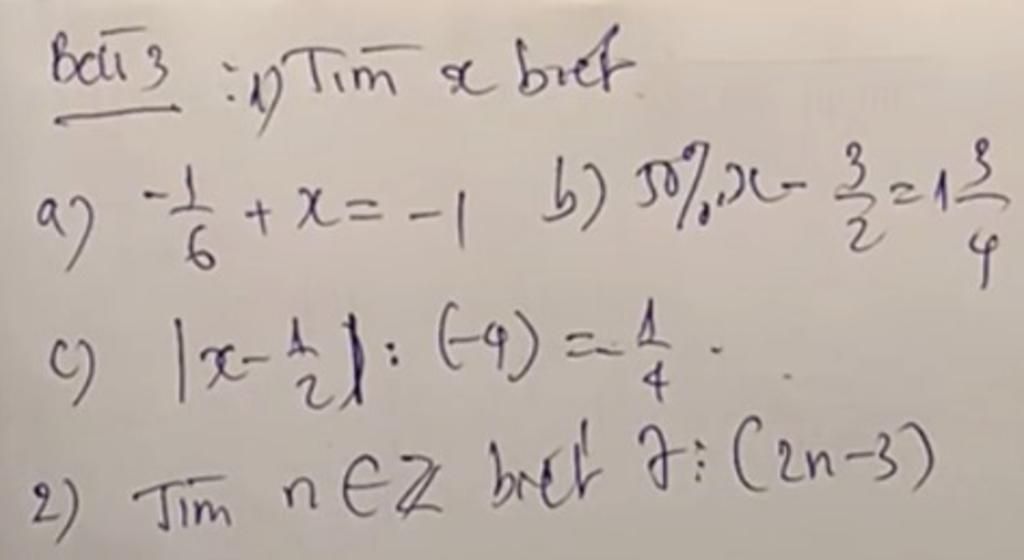 Bài 3 : 1) Tìm x biết
a) -1/6 + x = -1 b) 50%.x - 3/2 = 1 3/4
c) |x - 1/2| : (-4) = -1/4.
2) Tìm n ∈ Z biết 7 ⋮ (2n-3)